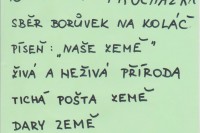 PROCHÁZKA
SBĚR BORŮVEK NA KOLÁČ
PÍSEŇ: „NAŠE ZEMĚ"
ŽIVÁ A NEŽIVÁ PŘÍRODA
TICHÁ POŠTA ZEMĚ
DARY ZEMĚ